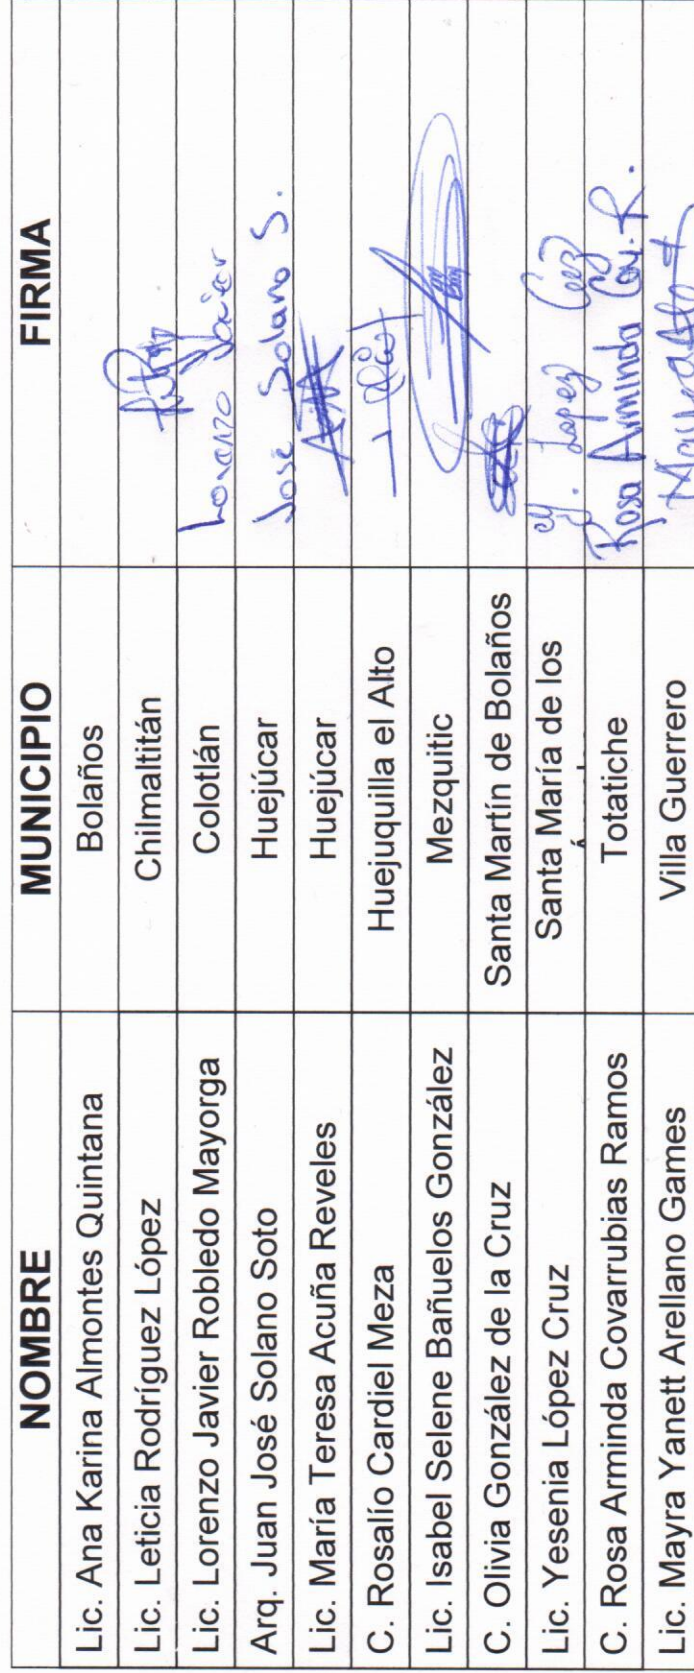 NOMBRE MUNICIPIO FIRMA
Lic. Ana Karina Almontes Quintana Bolaños
Lic. Leticia Rodríguez López Chilmaltitán
Lic. Lorenzo Javier Robledo Mayorga Colotlán Lorenzo Javier
Arq. Juan José Solano Soto Huejúcar José Solano S.
Lic. María Teresa Acuña Reveles Huejúcar
C. Rosalío Cardiel Meza Huejuquilla el Alto
Lic. Isabel Selene Bañuelos González Mezquitic
C. Olivia González de la Cruz Santa Martín de Bolaños
Lic. Yesenia López Cruz Santa María de los Y. Lopez Cruz
C. Rosa Arminda Covarrubias Ramos Totatiche Rosa Arminda Cov. R.
Lic. Mayra Yanett Arellano Games Villa Guerrero